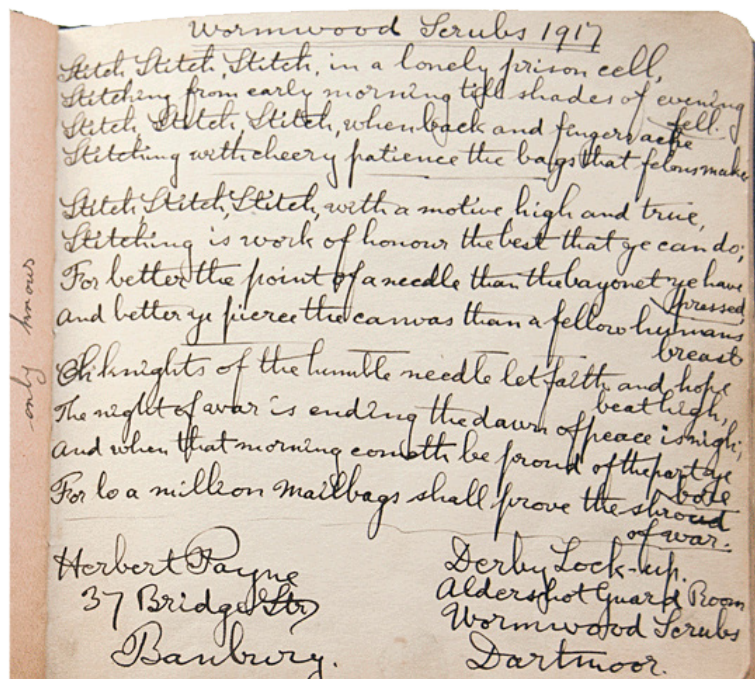 Wormwood Scrubs 1917
Stitch, Stitch, Stitch, in a lonely prison cell,
Stitching from early morning till shades of evening
fell.
Stitch, Stitch, Stitch, when back and fingers ache
Stitching with cheery patience the bags that felons make
Stitch, Stitch, Stitch, with a motive high and true,
Stitching is work of honour the best that ye can do;
For better the point of a needle than the bayonet ye have
pressed,
And better ye pierce the canvas than a fellow humans
breast
Oh knights of the humble needle let faith and hope
beat high,
The night of war is ending the dawn of peace is nigh;
And when that morning cometh be proud of the part ye
bore
For lo a million mailbags shall prove the shroud
of war.
Herbert Payne
37 Bridge Str
Banbury.
Derby Lock-up.
Aldershot Guard Room
Wormwood Scrubs
Dartmoor.
only knows